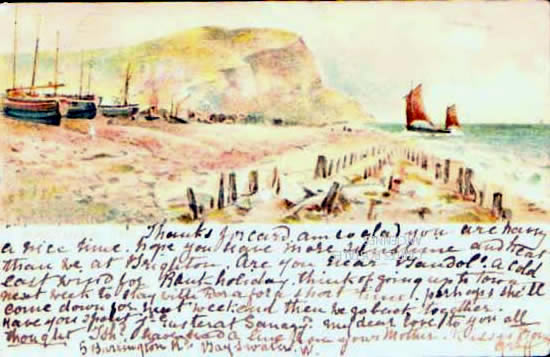 Thanks for card, am so glad you are having
a nice time. hope you have more sunshine and heat
than we at Brighton. Are you near "Bandol". A cold
east wind for Bank-holiday. think of going up to town
next week to stay with Dora for a short time. perhaps she'll
come down for next week end then we go back together
Have you spent Easter at Sanary. my dear love to you all
thought I have had a line from your Mother.
5 Burlington Rd Bayswater. W.